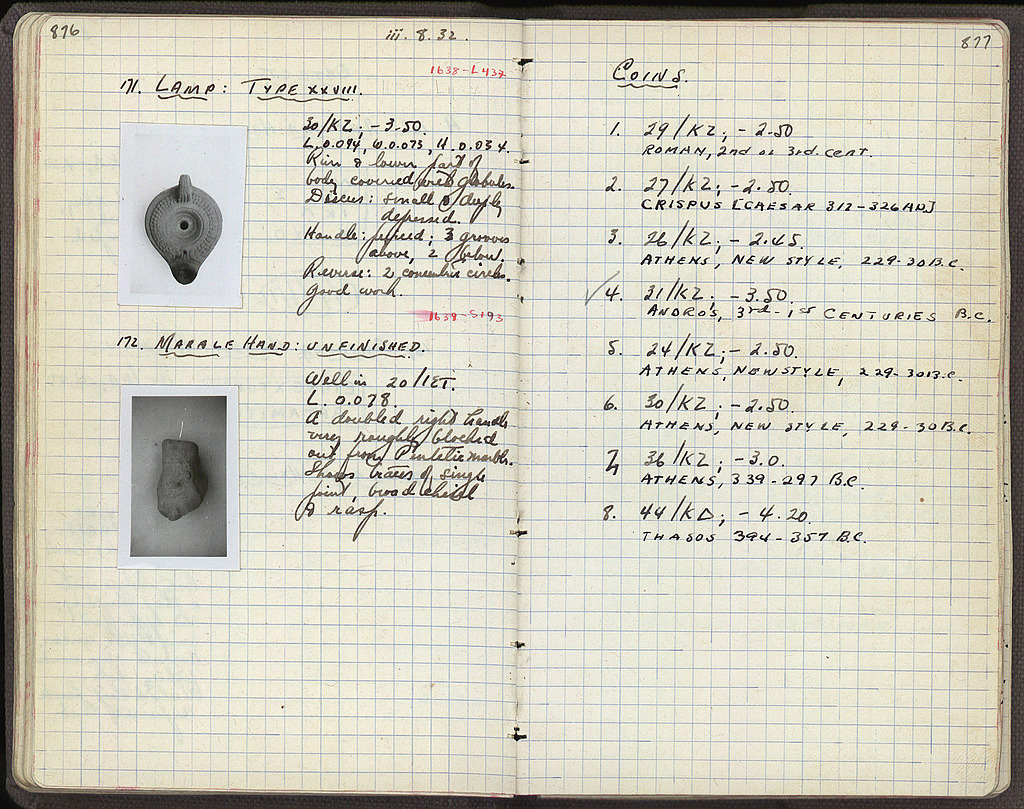 876
iii. 8. 32.
1638-L437
171. LAMP: TYPE XXVIII.
30/KZ; -3.50.
L. 0.094, W. 0.073, H. 0.034.
Rim & lower part of
body covered with globules.
Discus: small & deeply
depressed.
Handle: pierced; 3 grooves
above, 2 below.
Reverse: 2 concentric circles.
Good work.
1639-S193
172. MARBLE HAND: UNFINISHED.
Well in 20/ΙΣΤ.
L. 0.078.
A doubled right hand
very roughly blocked
out from Pentelic marble.
Shows traces of single
point, broad chisel
& rasp.
877
COINS.
1. 29/KZ; -2.50
ROMAN, 2nd or 3rd. CENT.
2. 27/KZ; -2.50.
CRISPUS [CAESAR 317-326 AD]
3. 26/KZ; -2.45.
ATHENS, NEW STYLE, 229-30 B.C.
✓4. 31/KZ; -3.50.
ANDROS, 3rd-1st CENTURIES B.C.
5. 24/KZ; -2.50.
ATHENS, NEW STYLE, 229-30 B.C.
6. 30/KZ; -2.50.
ATHENS, NEW STYLE, 229-30 B.C.
7. 36/KZ; -3.0.
ATHENS, 339-297 B.C.
8. 44/KΔ; -4.20.
THASOS 394-357 B.C.